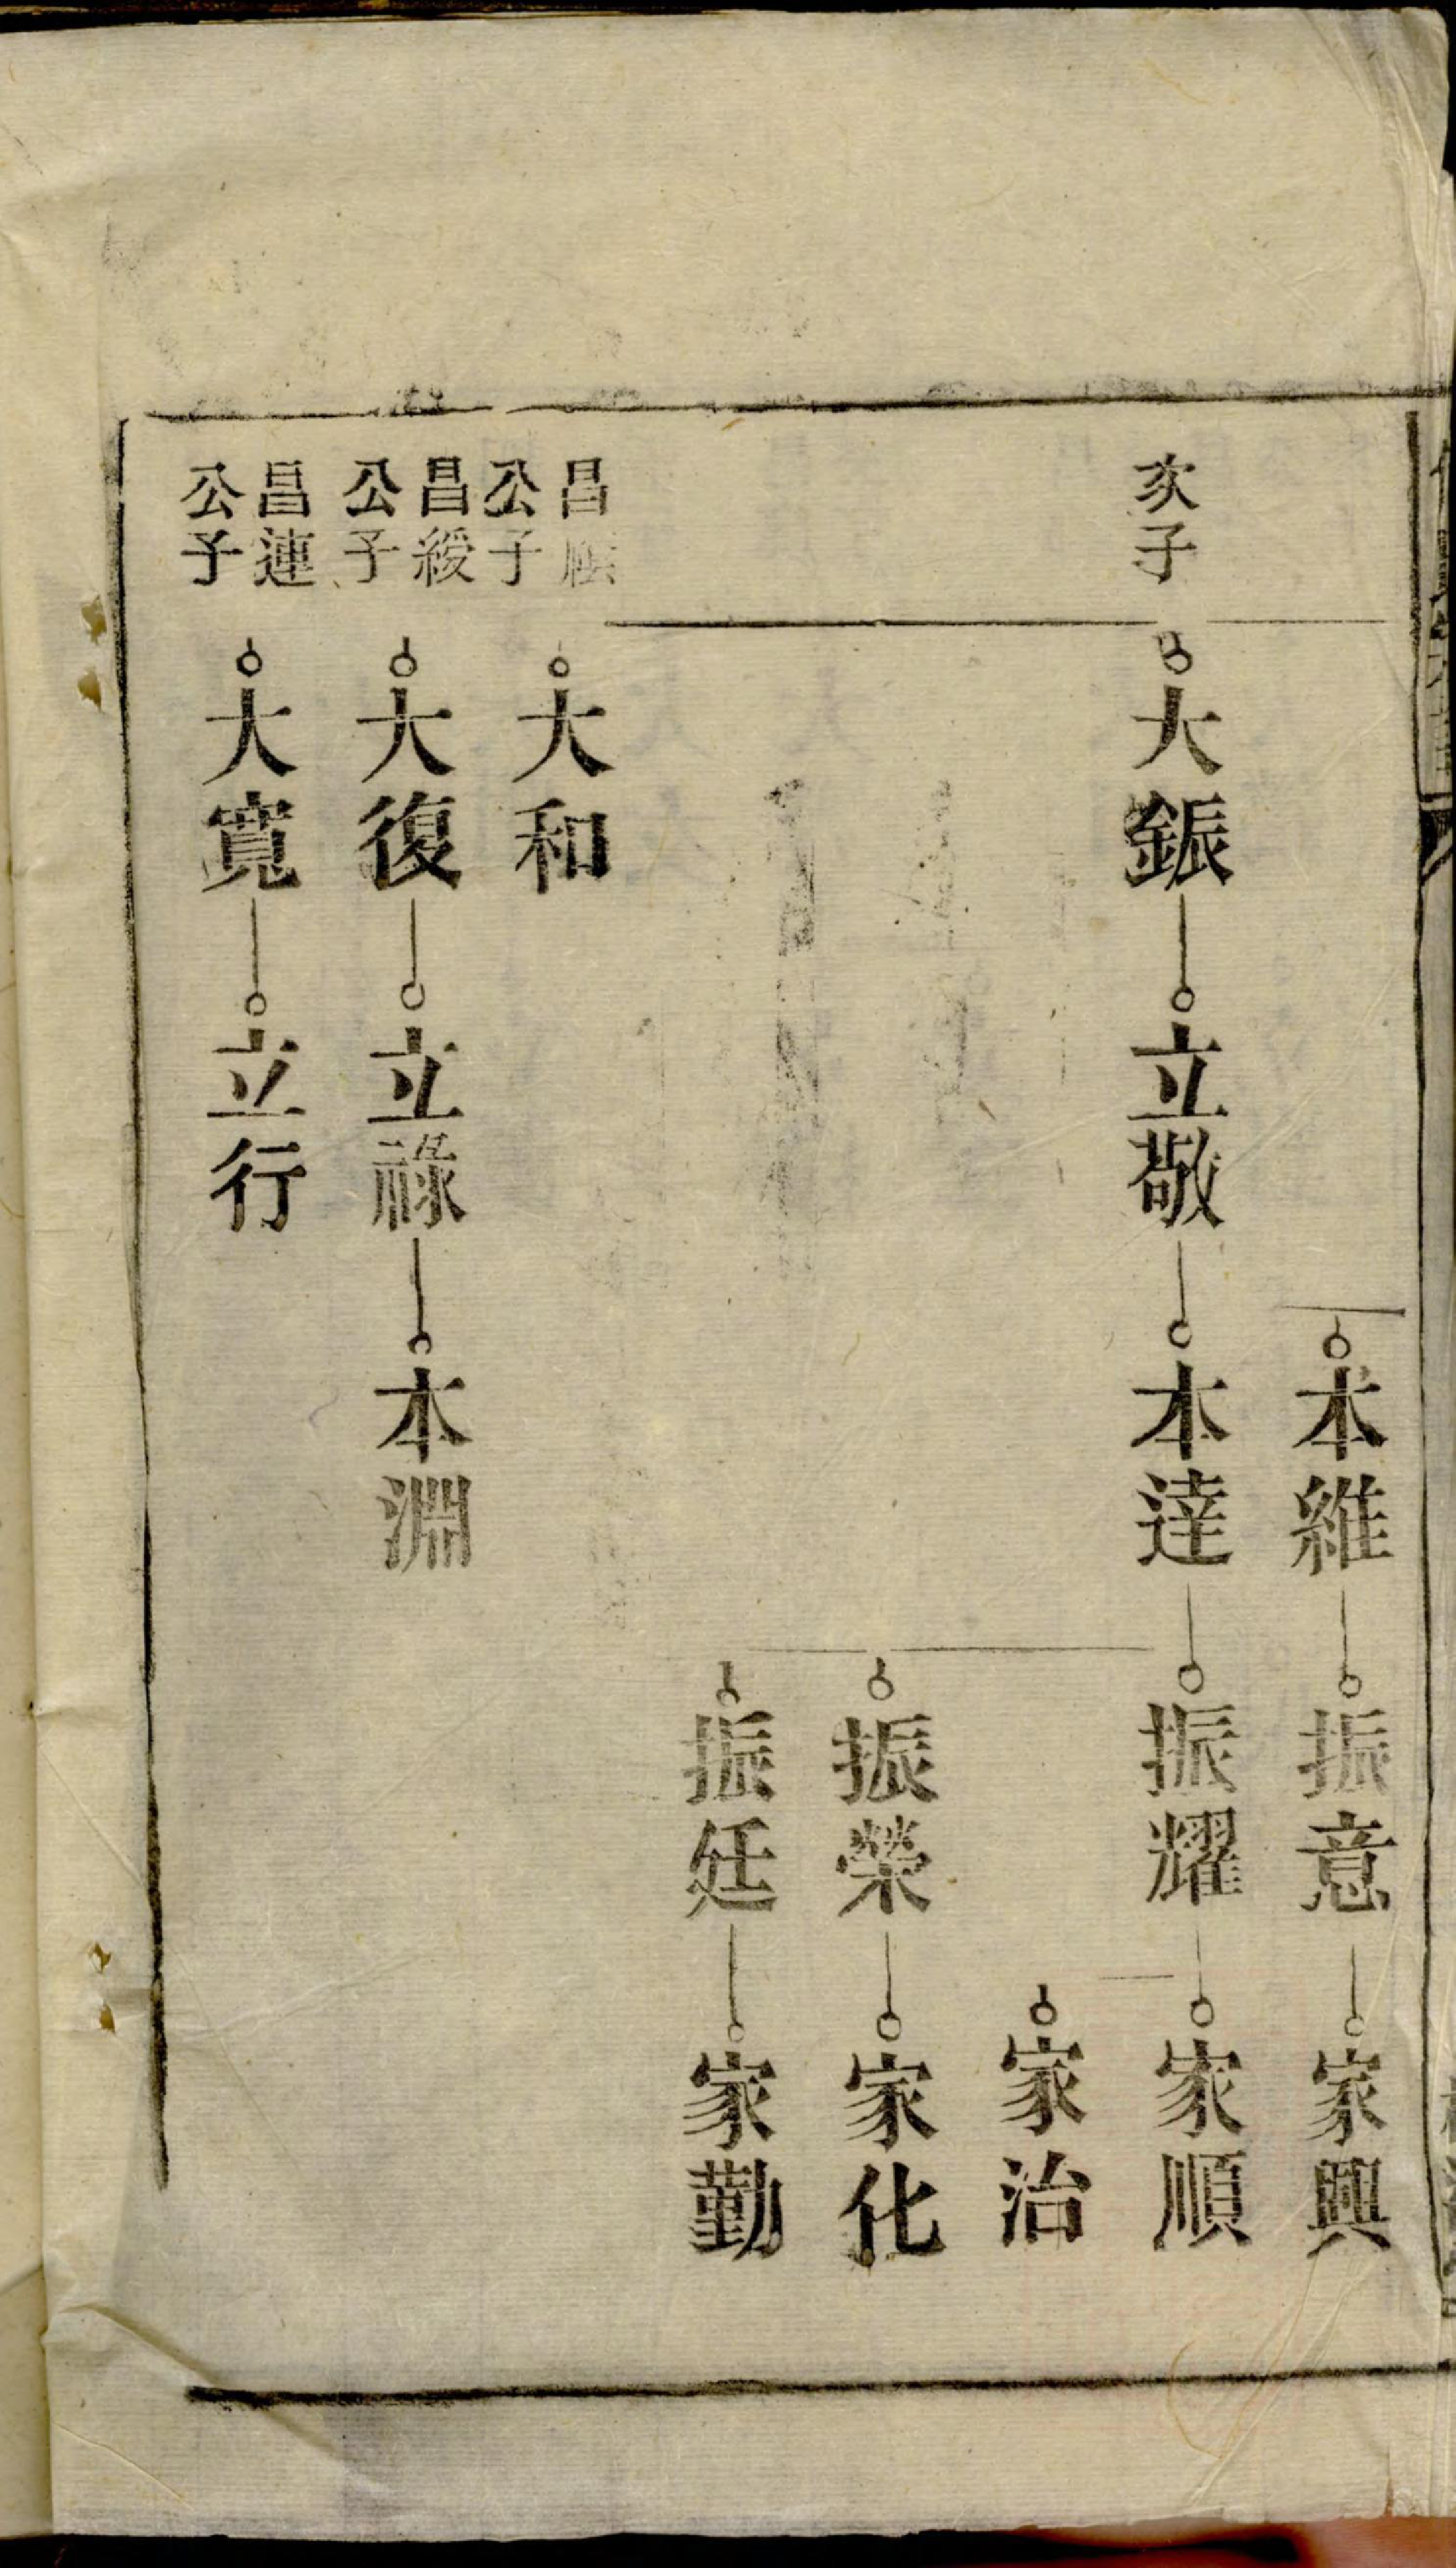 本維
振意
家興
次子
大鋠
立敬
本達
振耀
家順
家治
振榮
家化
振廷
家勤
昌
公子
大和
昌綬
公子
大復
立祿
本淵
昌連
公子
大寬
立行